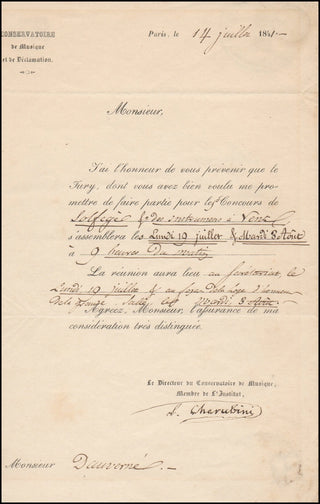 CONSERVATOIRE
de Musique
et de Déclamation.
Paris, le 14 juillet 1841-
Monsieur,
J'ai l'honneur de vous prévenir que le
Jury, dont vous avez bien voulu me pro-
mettre de faire partie pour les Concours de
Solfège & des instrumens à Vent
s'assemblera les Lundi 19 juillet & Mardi 3 Août
à 9 heures du matin
La réunion aura lieu au le
Lundi 19 juillet & au foyer de la Loge d'honneur
de la grande Salle le Mardi 3 Août.
Agréez, Monsieur, l'assurance de ma
considération très distinguée.
Le Directeur du Conservatoire de Musique,
Membre de L'Institut,
L. Cherubini
Monsieur Dauverné.-